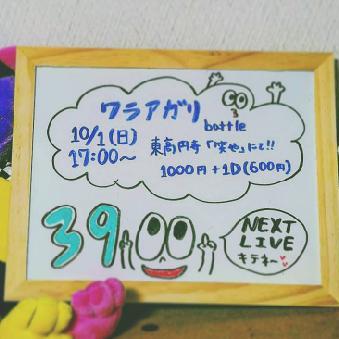 ワラアガリ
battle
10/1(日)
17:00〜
東高円寺「笑や」にて!!
1000円+1D(600円)
39
NEXT
LIVE
キテネー